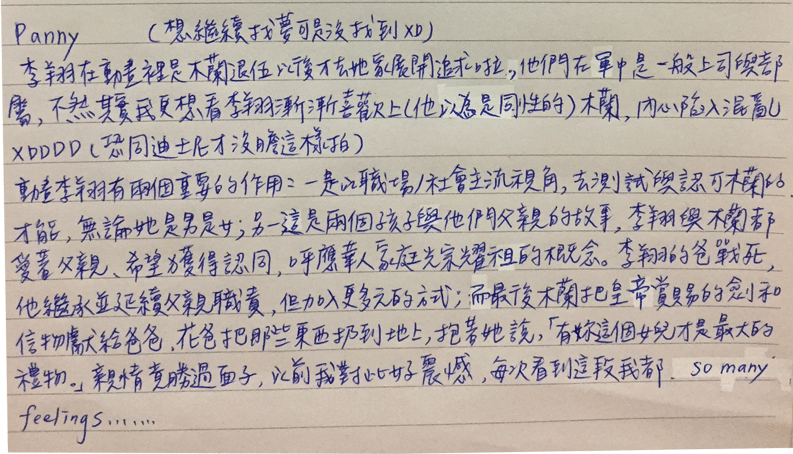 Panny （想繼續找夢可是沒找到XD）
李翔在動畫裡是木蘭退伍以後才去她家展開追求啦，他們在軍中是一般上司與部
屬，不然其實我更想看李翔漸漸喜歡上（他以為是同性的）木蘭，內心陷入混亂
XDDDD（恐同迪士尼才沒膽這樣拍）
動畫李翔有兩個重要的作用：一是以職場/社會主流視角，去測試與認可木蘭的
才能，無論她是男是女；另一這是兩個孩子與他們父親的故事，李翔與木蘭都
愛著父親、希望獲得認同，呼應華人家庭光宗耀祖的概念。李翔的爸戰死，
他繼承並延續父親職責，但加入更多元的方式；而最後木蘭把皇帝賞賜的劍和
信物獻給爸爸，花爸把那些東西扔到地上，抱著她說，「有妳這個女兒才是最大的
禮物。」親情竟勝過面子，以前我對此好震憾，每次看到這段我都. so many
feelings......